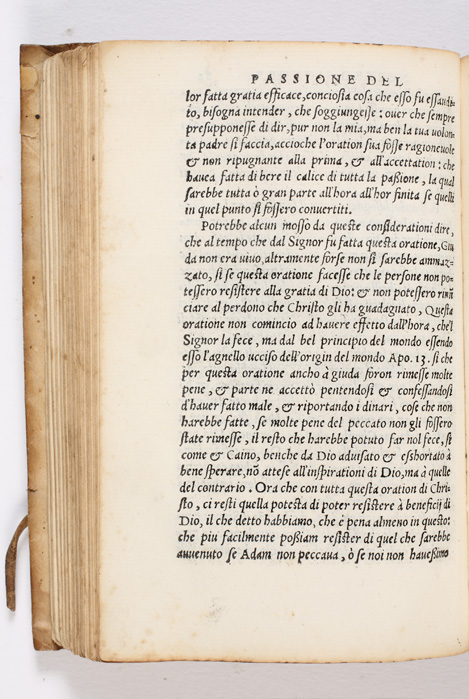 PASSIONE DEL
lor fatta gratia efficace, conciosia cosa che esso fu essaudi⸗
to, bisogna intender, che soggiungesse: ouer che sempre
presupponesse di dir, pur non la mia, ma ben la tua volon⸗
ta padre si faccia, accioche l'oration sua fosse ragioneuole
& non ripugnante alla prima, & all'accettation: che
hauea fatta di bere il calice di tutta la passione, la qual
sarebbe tutta ò gran parte all'hora all'hor finita se quelli
in quel punto si fossero conuertiti.
Potrebbe alcun mosso da queste considerationi dire,
che al tempo che dal Signor fu fatta questa oratione, Giu
da non era uiuo, altramente forse non si sarebbe ammaz⸗
zato, si se questa oratione facesse che le persone non po⸗
tessero resistere alla gratia di Dio: & non potessero rinū
ciare al perdono che Christo gli ha guadagnato, Questa
oratione non comincio ad hauere effetto dall'hora, che'l
Signor la fece, ma dal bel principio del mondo essendo
esso l'agnello ucciso dell'origin del mondo Apo. 13. si che
per questa oratione ancho à giuda foron rimesse molte
pene, & parte ne accettò pentendosi & confessandosi
d'hauer fatto male, & riportando i dinari, cose che non
harebbe fatte, se molte pene del peccato non gli fossero
state rimesse, il resto che harebbe potuto far nol fece, si
come & Caino, benche da Dio aduisato & esshortato à
bene sperare, nō attese all'inspirationi di Dio, ma à quelle
del contrario. Ora che con tutta questa oration di Chri⸗
sto, ci resti quella potesta di poter resistere à beneficij di
Dio, il che detto habbiamo, che è pena almeno in questo:
che piu facilmente possiam resister di quel che sarebbe
auuenuto se Adam non peccaua, ò se noi non hauessimo